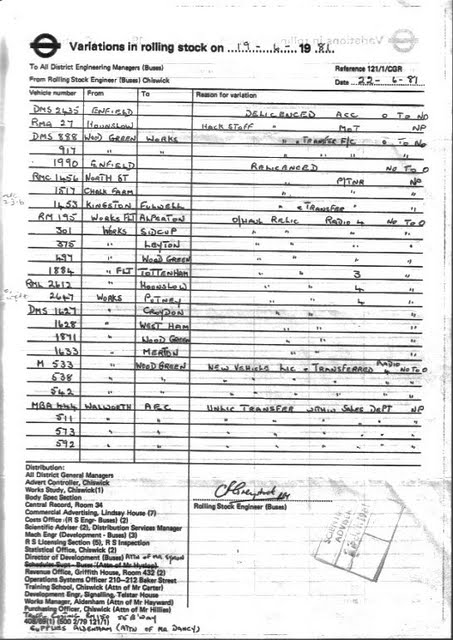 Variations in rolling stock on 19 - 6 - 19 81
To All District Engineering Managers (Buses)
Reference 121/1/CGR
From Rolling Stock Engineer (Buses) Chiswick
Date 22-6-81
Vehicle number From To Reason for variation
DMS 2435 ENFIELD DELICENCED ACC O TO NO
RMA 27 HOUNSLOW HACK STOFF " MOT NP
DMS 888 WOOD GREEN WORKS " " TRANSFER F/C O TO NO
917 " " " " "
1990 ENFIELD RELICENCED NO TO O
RMC 1456 NORTH ST " NP
1517 CHALK FARM " " "
1453 KINGSTON FULWELL " TRANSFER " "
RM 195 WORKS FLT ALPERTON O/HAUL RELIC RADIO 4 NO TO O
301 WORKS SIDCUP " " "
375 " LEYTON " " "
497 " WOOD GREEN " " "
1884 " FLT TOTTENHAM " " 3 "
RML 2612 " HOUNSLOW " " 4 "
2647 WORKS PUTNEY " " 4 "
DMS 1627 " CROYDON " " "
1628 " WEST HAM " " "
1871 " WOOD GREEN " " "
1633 " MERTON " " "
M 533 WOOD GREEN NEW VEHICLE LIC & TRANSFERRED RADIO 4 NO TO O
538 " " " " "
542 " " " " "
MBA 444 WALWORTH AEC UNLIC TRANSFER WITHIN SALES DEPT NP
511 " " " " " "
573 " " " " " "
592 " " " " " "
Distribution:
All District General Managers
Advert Controller, Chiswick
Works Study, Chiswick (1)
Body Spec Section
Central Record, Room 34
Rolling Stock Engineer (Buses)
Commercial Advertising, Lindsay House (7)
Costs Office (R S Engr- Buses) (2)
Scientific Adviser (2), Distribution Services Manager
Mech Engr (Development - Buses) (3)
R S Licensing Section (5), R S Inspection
Statistical Office, Chiswick (2)
Director of Development (Buses) Attn of Mr
Schedules Supt - Buses (Attn of Mr Hyslop)
Revenue Office, Griffith House, Room 432 (2)
Operations Systems Officer 210-212 Baker Street
Training School, Chiswick (Attn of Mr Carter)
Development Engr, Signalling, Telstar House
Works Manager, Aldenham (Attn of Mr Hayward)
Purchasing Officer, Chiswick (Attn of Mr Hillies)
408/89(1) (500 2/79 121/1)
SUPPLIES ALDENHAM (ATTN OF MR DANCY)